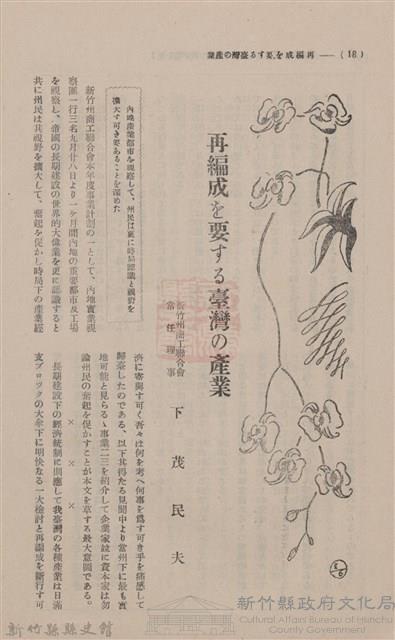 (18) ── 再編成を要する臺灣の產業
再編成を要する臺灣の產業
新竹州商工聯合會
常任理事
下茂民夫
內地產業都市を視察して、州民は更に時局認識と視野を
擴大す可き要あることを深めた
新竹州商工聯合會本年度事業計劃の一として、內地實業視
察團一行三名九月廿八日より一ヶ月間內地の重要都市及工場
を視察し、帝國の長期建設の世界的大偉業を更に認識すると
共に州民は其視野を擴大して、奮起を促かし時局下の產業經
濟に寄與す可く吾々は何を考へ何事を爲す可き乎を痛感して
歸臺したのである、以下其得たる見聞中より當州下に最も實
地可能と見らるゝ事業二三を紹介して企業家竝に資本家は勿
論州民の奮起を促かすことが本文を草する最大意圖である。
× × ×
長期建設下の經濟統制に照應して我臺灣の各種產業は日滿
支ブロックの大傘下に明快なる一大檢討と再編成を斷行す可
新竹縣縣史館
新竹縣政府文化局
Cultural Affairs Bureau of Hsinchu
County Government